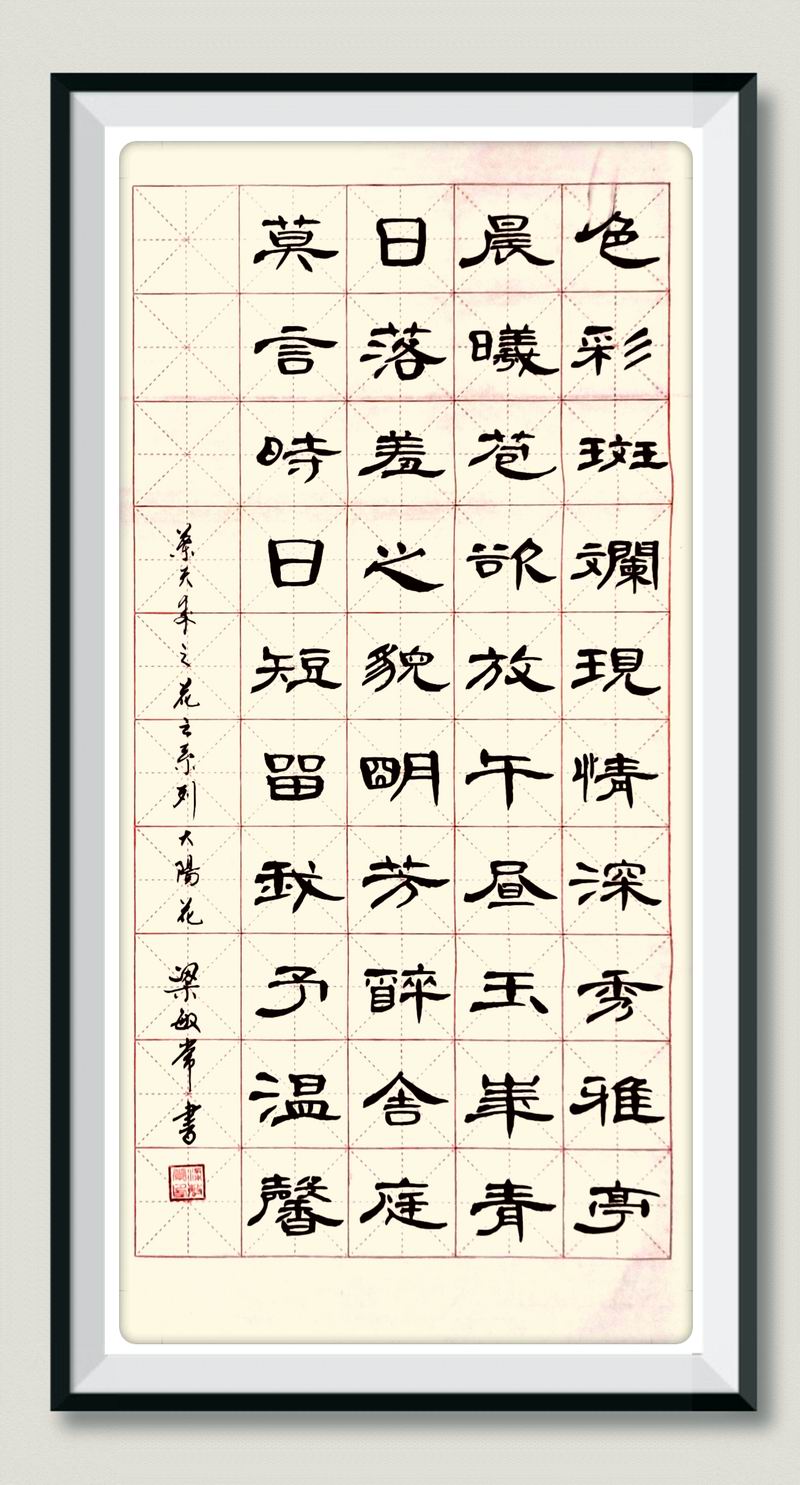 色彩斑斕現情深秀雅亭
晨曦苞欲放午昼玉年青
日落羞之貌明芳醉舍庭
莫言時日短留我予温馨
之花之系列太陽花 梁敏常書